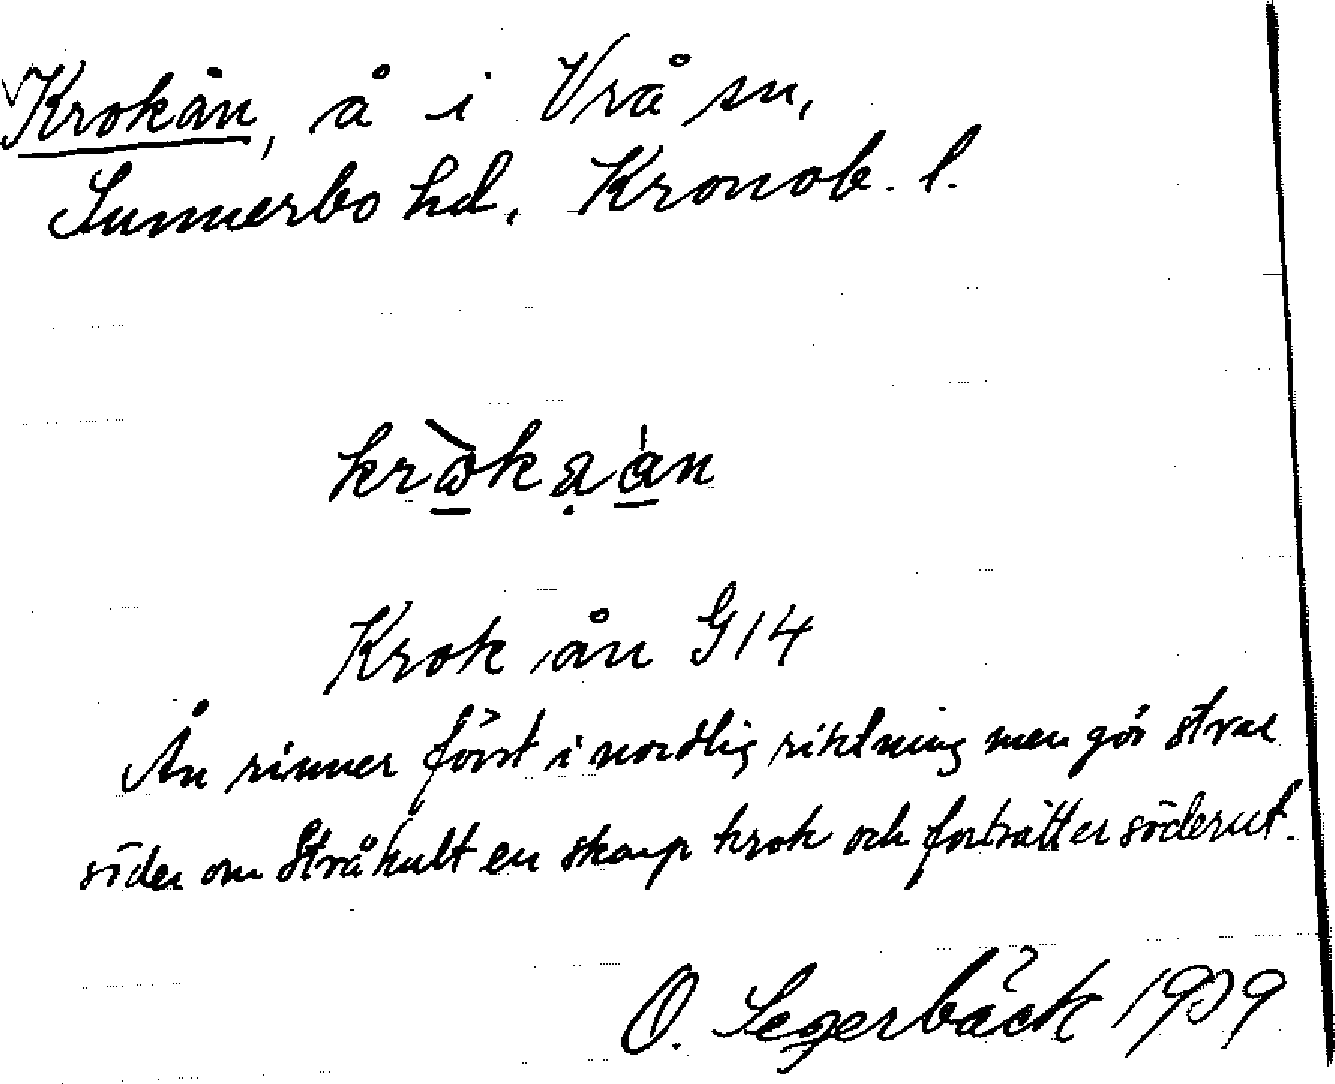 Krokån, å i Vrå sn,
Sunnerbo hd, Kronob. l.
Krok ån G14
Ån rinner först i nordlig riktning men gör strax
söder om Stråhult en skarp krok och fortsätter söderut.
O. Segerbäck 1939